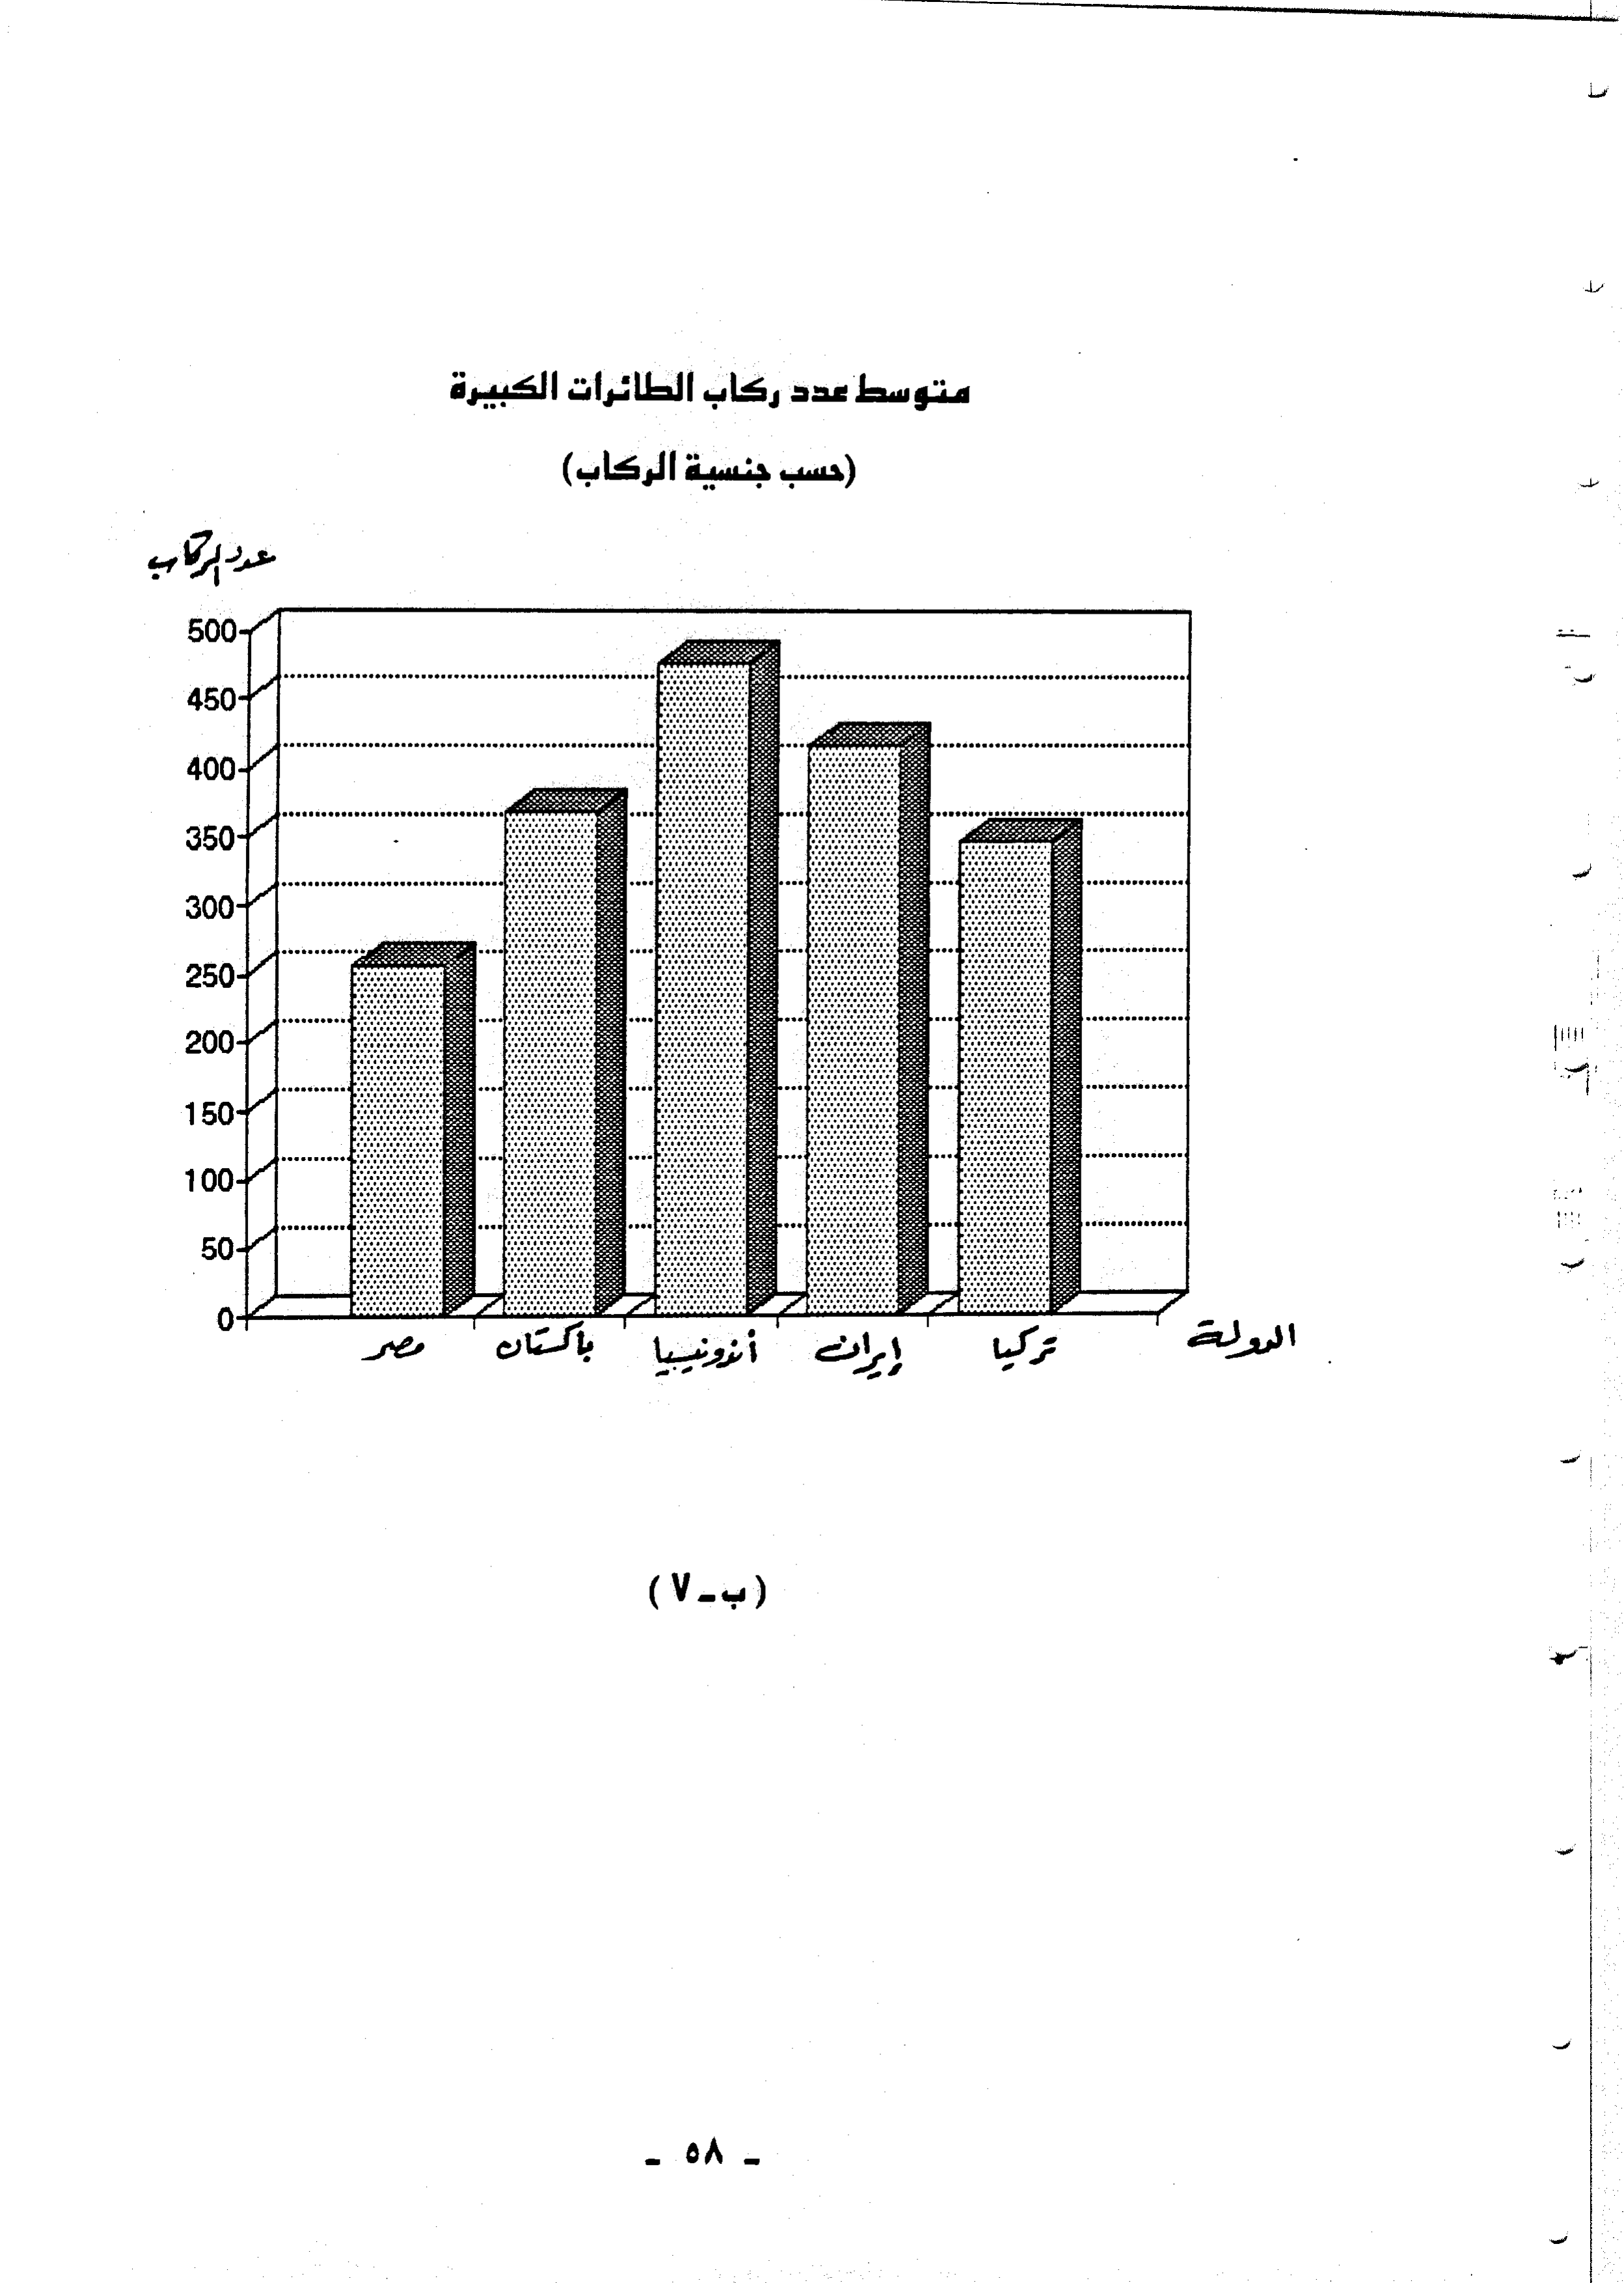 متوسط عدد ركاب الطائرات الكبيرة
(حسب جنسية الركاب)
عدد الركاب
500
450
400
350
300
250
200
150
100
50
0
مصر باكستان أندونيسيا إيران تركيا الدولة
(ب-٧)
- ٥٨ -